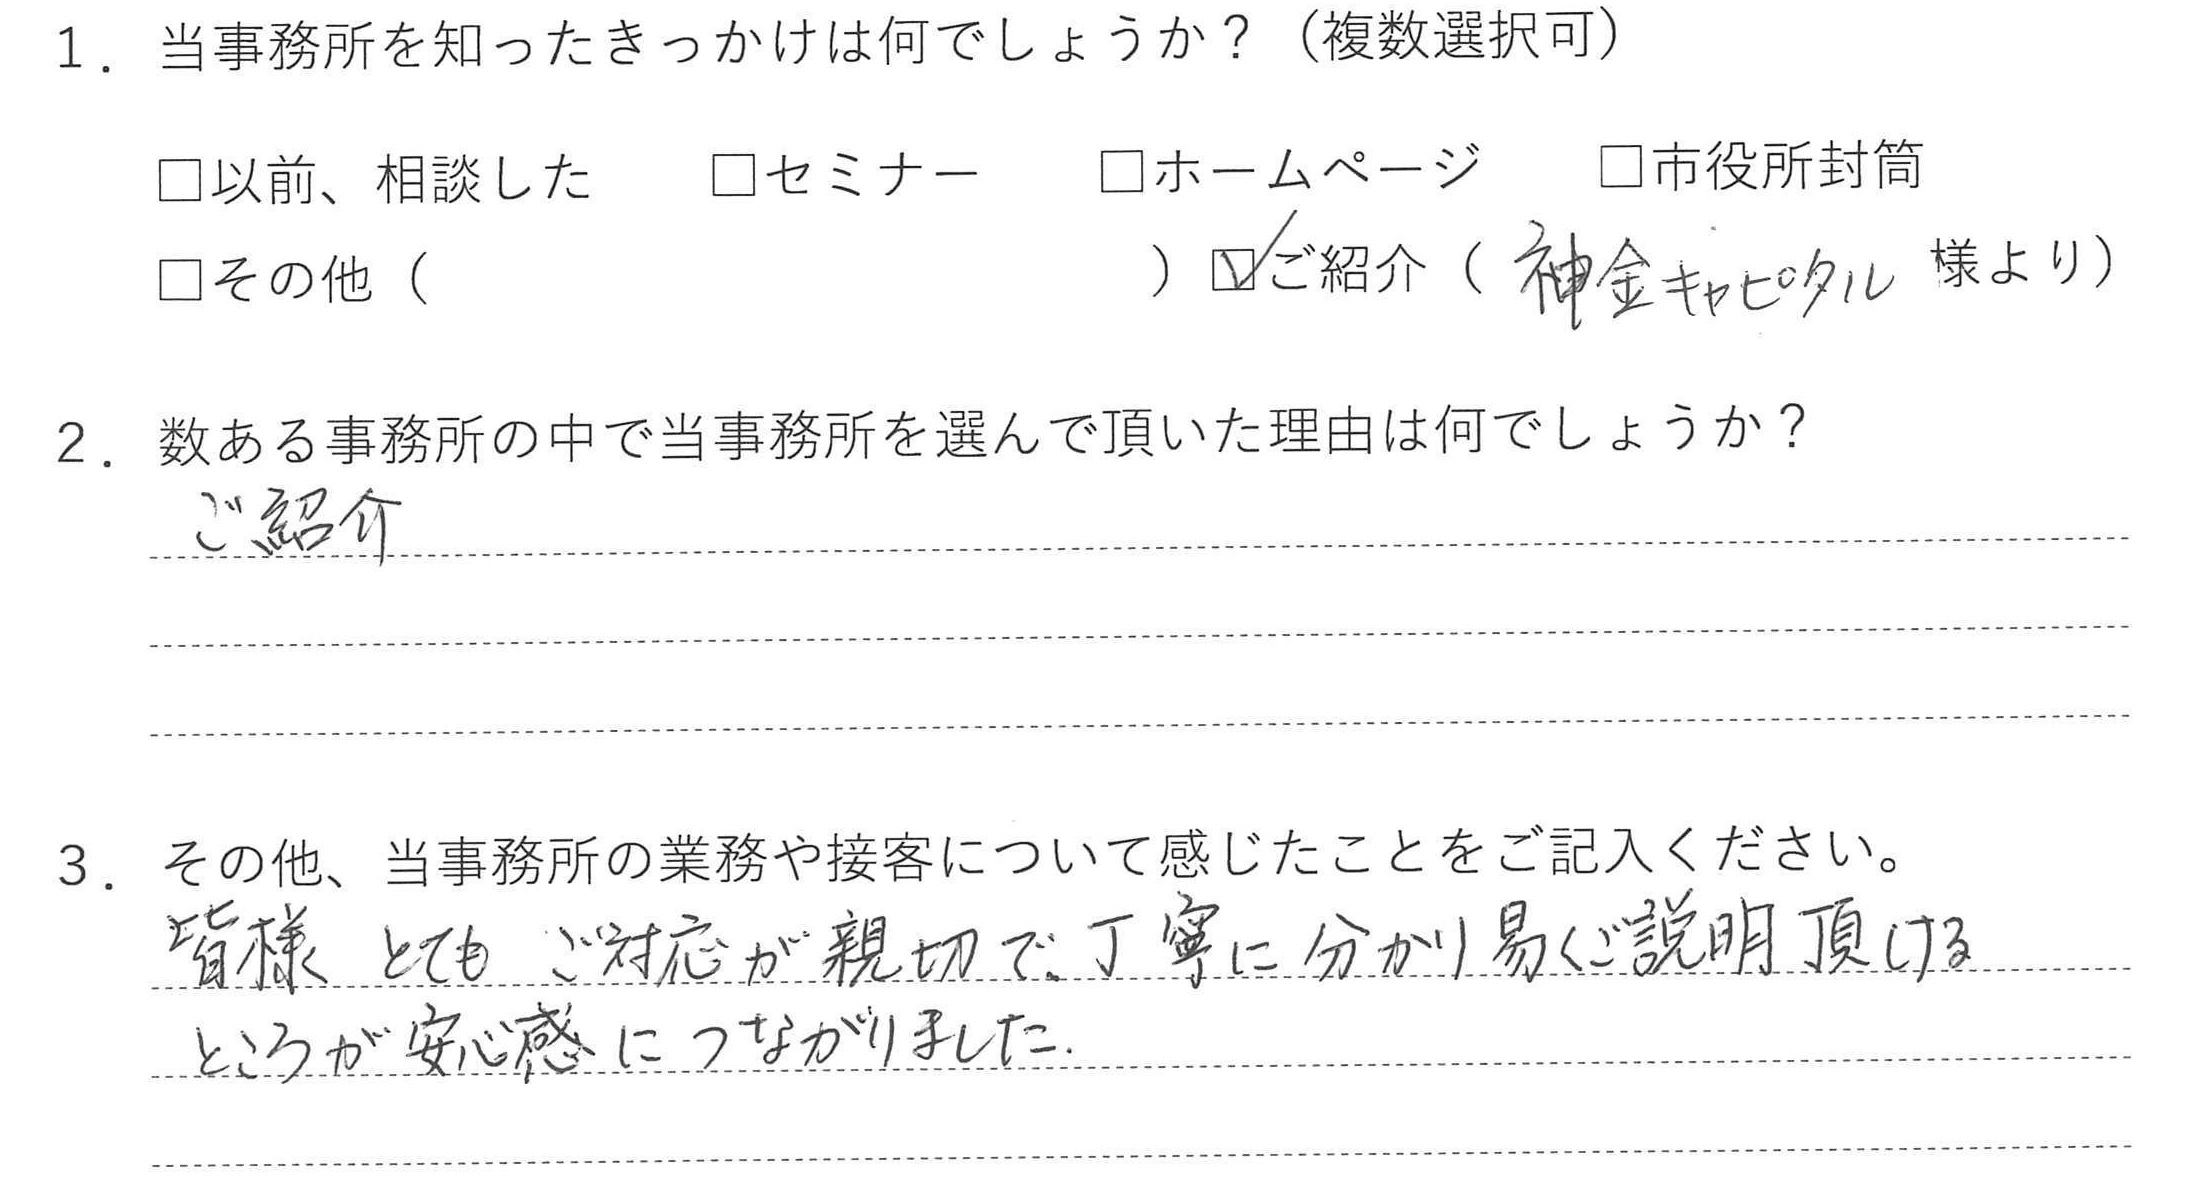 1．当事務所を知ったきっかけは何でしょうか？（複数選択可）
□以前、相談した　□セミナー　□ホームページ　□市役所封筒
□その他（　　　）☑ご紹介（神金キャピタル 様より）
2．数ある事務所の中で当事務所を選んで頂いた理由は何でしょうか？
ご紹介
3．その他、当事務所の業務や接客について感じたことをご記入ください。
皆様 とても ご対応が親切で、丁寧に分かり易くご説明頂ける
ところが安心感につながりました.